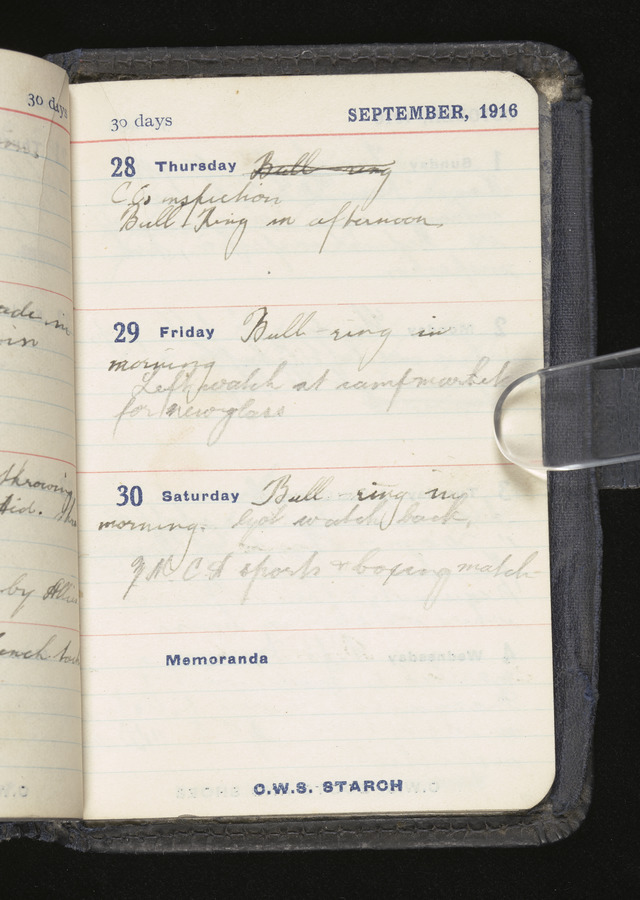 30 days
30 days SEPTEMBER, 1916
28 Thursday Bull ring
C.O's inspection
Bull Ring in afternoon
29 Friday Bull ring in
morning
Left watch at camp market
for new glass
30 Saturday Bull ring in
morning. Got watch back,
Y.M.C.A sports & boxing match
Memoranda
C.W.S. STARCH
throwing
by